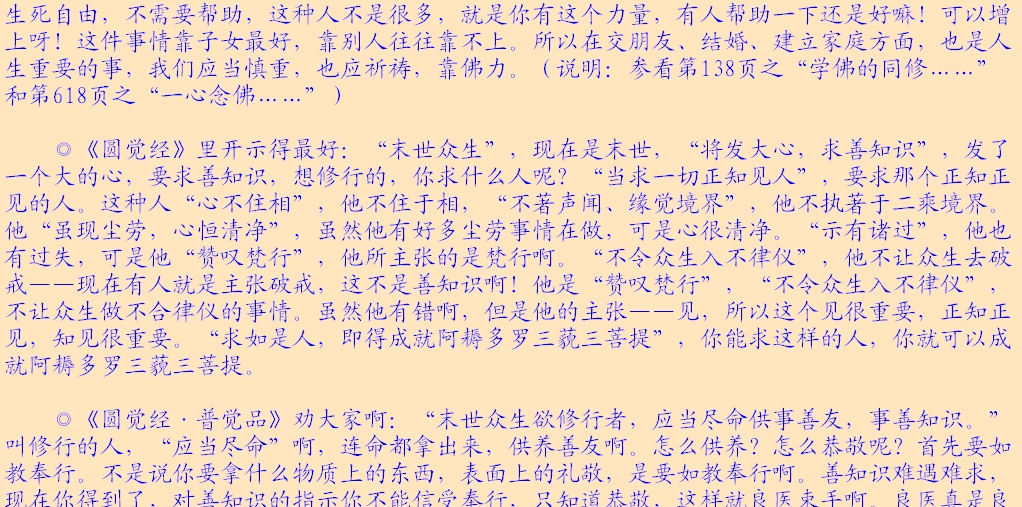 生死自由，不需要帮助，这种人不是很多，就是你有这个力量，有人帮助一下还是好嘛！可以增
上呀！这件事情靠子女最好，靠别人往往靠不上。所以在交朋友、结婚、建立家庭方面，也是人
生重要的事，我们应当慎重，也应祈祷，靠佛力。（说明：参看第138页之“学佛的同修……”
和第618页之“一心念佛……”）
◎《圆觉经》里开示得最好：“末世众生”，现在是末世，“将发大心，求善知识”，发了
一个大的心，要求善知识，想修行的，你求什么人呢？“当求一切正知见人”，要求那个正知正
见的人。这种人“心不住相”，他不住于相，“不著声闻、缘觉境界”，他不执著于二乘境界。
他“虽现尘劳，心恒清净”，虽然他有好多尘劳事情在做，可是心很清净。“示有诸过”，他也
有过失，可是他“赞叹梵行”，他所主张的是梵行啊。“不令众生入不律仪”，他不让众生去破
戒——现在有人就是主张破戒，这不是善知识啊！他是“赞叹梵行”，“不令众生入不律仪”，
不让众生做不合律仪的事情。虽然他有错啊，但是他的主张——见，所以这个见很重要，正知正
见，知见很重要。“求如是人，即得成就阿耨多罗三藐三菩提”，你能求这样的人，你就可以成
就阿耨多罗三藐三菩提。
◎《圆觉经·普觉品》劝大家啊：“末世众生欲修行者，应当尽命供事善友，事善知识。”
叫修行的人，“应当尽命”啊，连命都拿出来，供养善友啊。怎么供养？怎么恭敬呢？首先要如
教奉行。不是说你要拿什么物质上的东西，表面上的礼敬，是要如教奉行啊。善知识难遇难求，
现在你得到了，对善知识的指示你不能信受奉行，只知道恭敬，这样就良医束手啊。良医真是良